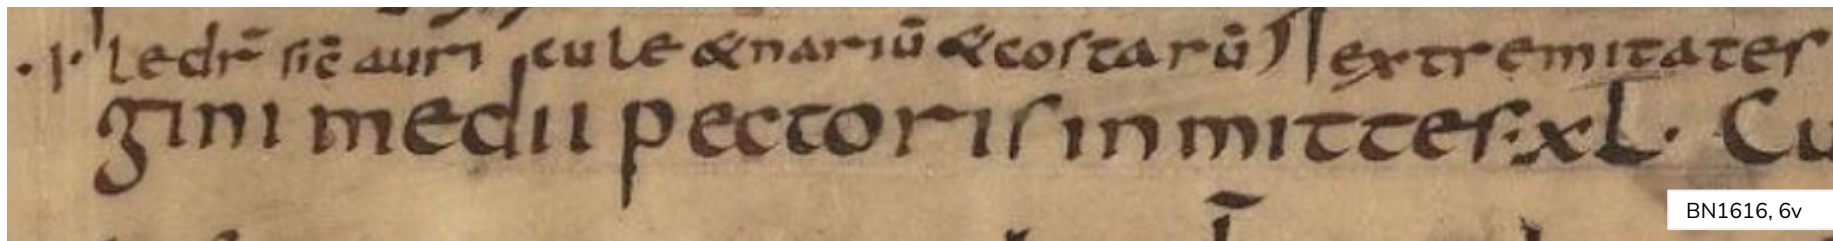 ·i· ledr̄ sic̄ auri cule & nariū & costarū extremitates
gini medii pectoris inmittes·xl· Cu
BN1616, 6v